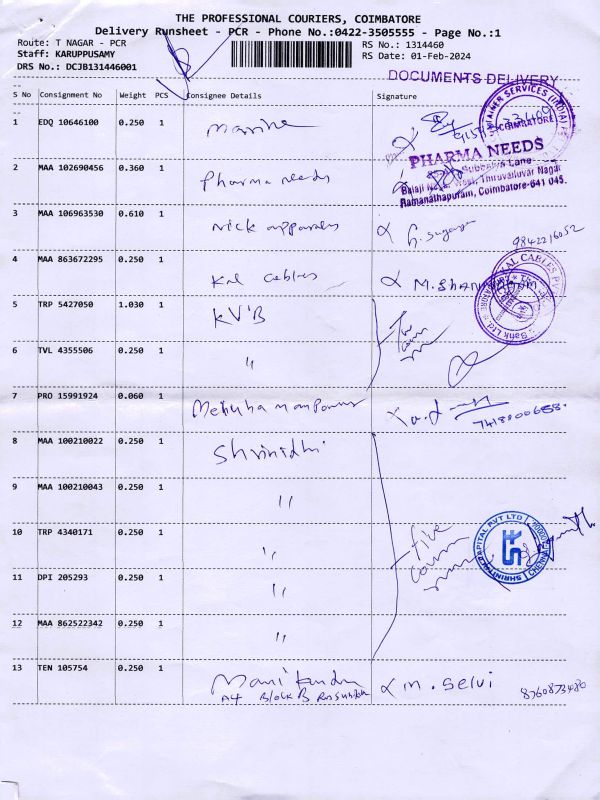 THE PROFESSIONAL COURIERS, COIMBATORE
Delivery Runsheet - PCR - Phone No.:0422-3505555 - Page No.:1
Route: T NAGAR - PCR
Staff: KARUPPUSAMY
DRS No.: DCJB131446001
RS No.: 1314460
RS Date: 01-Feb-2024
DOCUMENTS DELIVERY
S No Consignment No Weight PCS Consignee Details Signature
1 EDQ 10646100 0.250 1
COIMBATORE
PHARMA NEEDS
Ramanathapuram, Coimbatore-641 045.
2 MAA 102690456 0.360 1 Pharma needs
3 MAA 106963530 0.610 1 Nick apparels
9842216052
4 MAA 863672295 0.250 1 Kal Cables
CABLES
5 TRP 5427050 1.030 1 KVB
6 TVL 4355506 0.250 1 "
7 PRO 15991924 0.060 1
8 MAA 100210022 0.250 1 Shrinidhi
9 MAA 100210043 0.250 1 "
10 TRP 4340171 0.250 1 " five
SHRINIDHI CAPITAL PVT LTD
11 DPI 205293 0.250 1 "
12 MAA 862522342 0.250 1 "
13 TEN 105754 0.250 1 M. Selvi
A4 Block B
8760873486